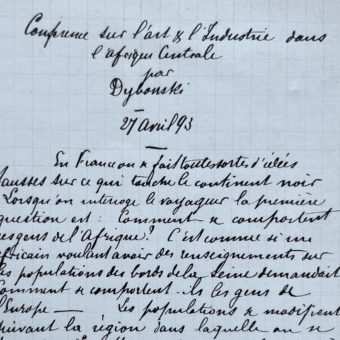 Conference sur l'art & l'Industrie dans
l'Afrique Centrale
par
Dybonski
27 Avril 93
En France on se fait toutes sortes d'idées
fausses sur ce qui touche le continent noir
Lorsqu'on interroge le voyageur la première
question est : Comment se comportent
les gens de l'Afrique ? C'est comme si un
africain voulant avoir des renseignements sur
les populations des bords de la Seine demandait
Comment se comportent-ils les gens de
l'Europe — Les populations se modifient
suivant la région dans laquelle on se